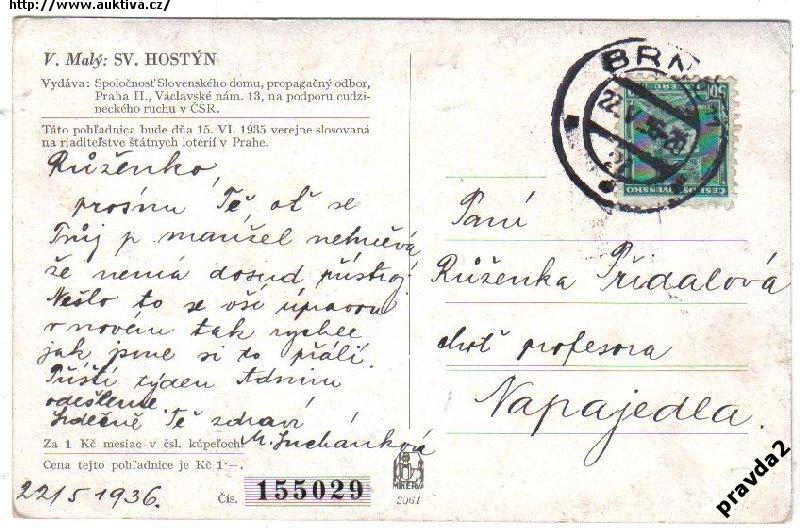 http://www.auktiva.cz/
V. Malý: SV. HOSTÝN
Vydáva: Spoločnosť Slovenského domu, propagačný odbor,
Praha II., Václavské nám. 13, na podporu cudzi-
neckého ruchu v ČSR.
Táto pohľadnica bude dňa 15. VI. 1935 verejne slosovaná
na riaditeľstve štátnych loterií v Prahe.
Růženko,
prosím Tě ať se
Tvůj p. manžel nehněvá
že nemá dosud přístroj.
Nešlo to se vší úpravou
v novém tak rychle
jak jsme si to přáli.
Příští týden
odešleme.
Srdečně Tě zdraví
M. Suchánková
Za 1 Kč mesiac v čsl. kúpeľoch!
Cena tejto pohľadnice je Kč 1·—.
22/5 1936.
Čís. 155029
MINERVA
2061
BRNO
22.V.36
50
ČESKOSLOVENSKO
Paní
Růženka Přidalová
choť profesora
Napajedla.
pravda2